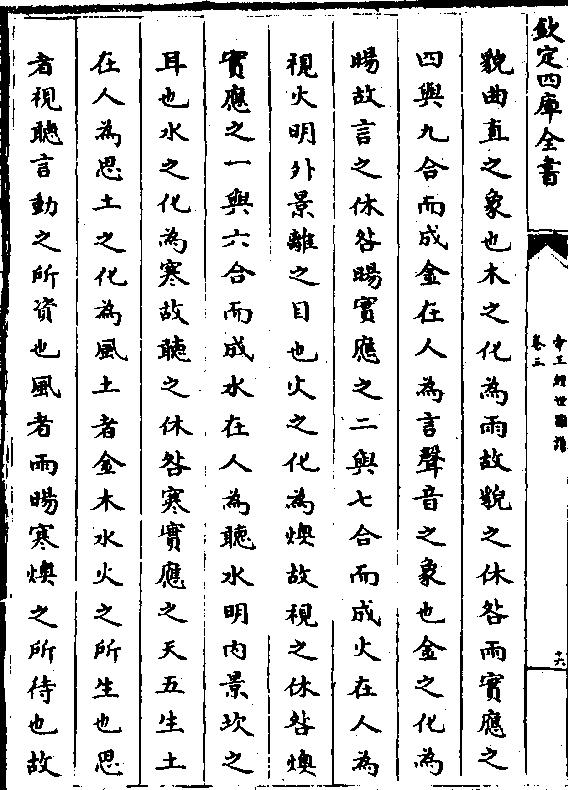 欽定四庫全書
帝王經世圖譜
卷三
十六
貌曲直之象也木之化為雨故貌之休咎雨實應之
四與九合而成金在人為言聲音之象也金之化為
暘故言之休咎暘實應之二與七合而成火在人為
視火明外景離之目也火之化為燠故視之休咎燠
實應之一與六合而成水在人為聽水明内景坎之
耳也水之化為寒故聽之休咎寒實應之天五生土
在人為思土之化為風土者金木水火之所生也思
者視聽言動之所資也風者雨暘寒燠之所待也故